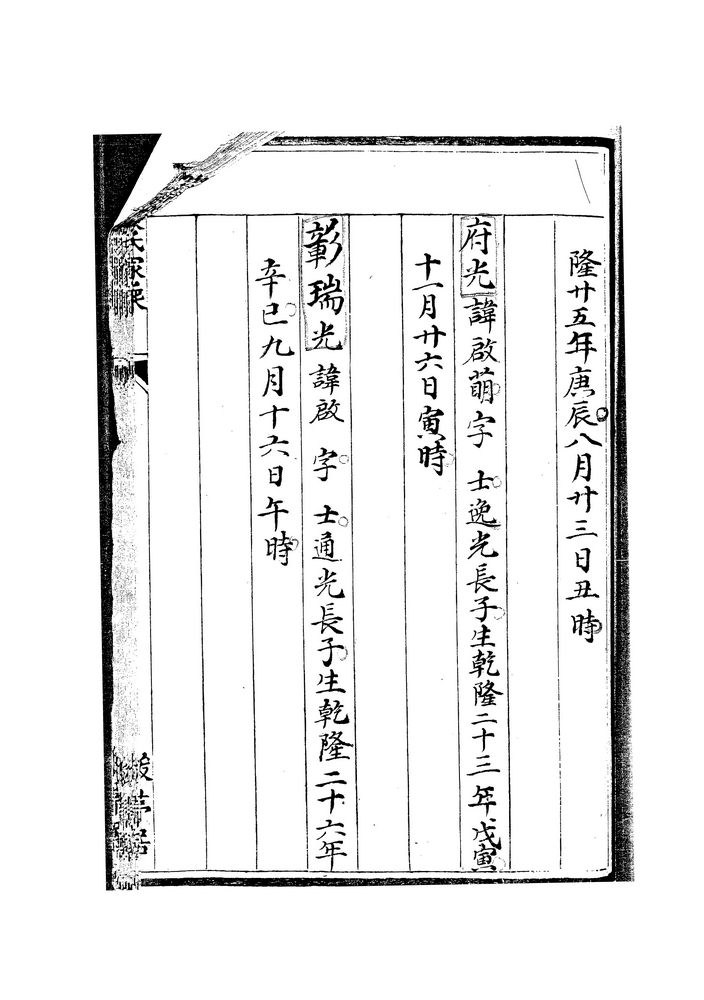 隆廿五年庚辰八月廿三日丑時
府光諱啟萌字　士逸光長子生乾隆二十三年戊寅
十一月廿六日寅時
彰瑞光諱啟　字　士通光長子生乾隆二十六年
辛巳九月十六日午時
氏家乘